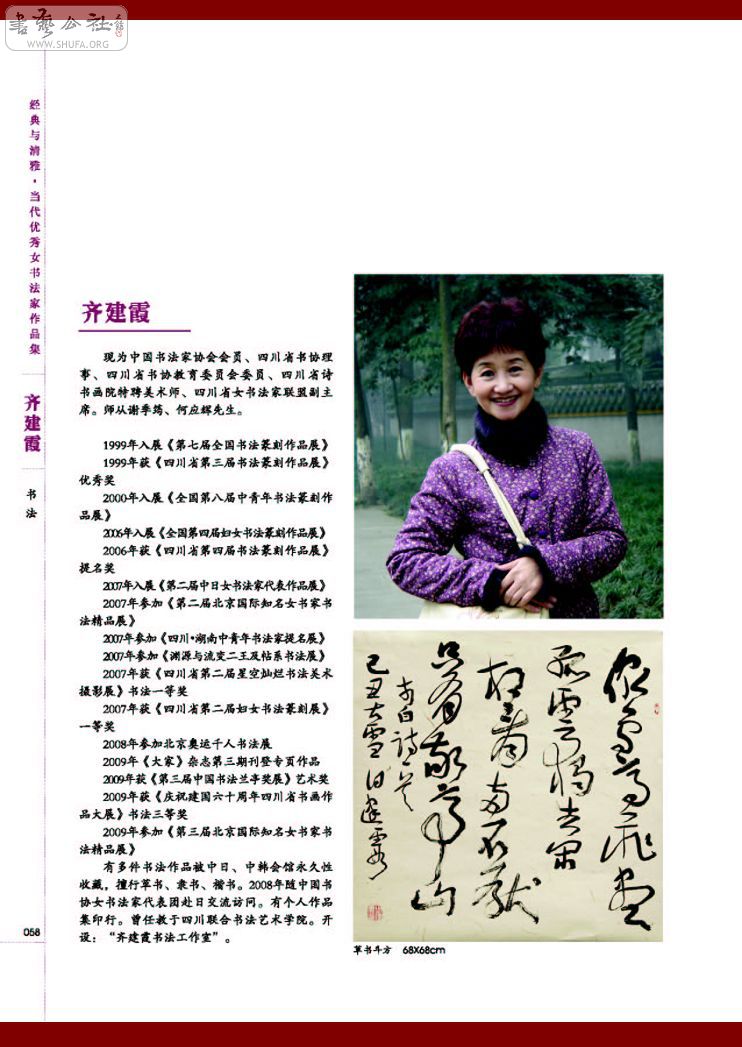 書藝公社
WWW.SHUFA.ORG
经典与清雅·当代优秀女书法家作品集
齐建霞
书法
058
齐建霞
现为中国书法家协会会员、四川省书协理
事、四川省书协教育委员会委员、四川省诗
书画院特聘美术师、四川省女书法家联盟副主
席。师从谢季筠、何应辉先生。
1999年入展《第七届全国书法篆刻作品展》
1999年获《四川省第三届书法篆刻作品展》
优秀奖
2000年入展《全国第八届中青年书法篆刻作
品展》
2006年入展《全国第四届妇女书法篆刻作品展》
2006年获《四川省第四届书法篆刻作品展》
提名奖
2007年入展《第二届中日女书法家代表作品展》
2007年参加《第二届北京国际知名女书家书
法精品展》
2007年参加《四川·湖南中青年书法家提名展》
2007年参加《渊源与流变二王及帖系书法展》
2007年获《四川省第二届星空灿烂书法美术
摄影展》书法一等奖
2007年获《四川省第二届妇女书法篆刻展》
一等奖
2008年参加北京奥运千人书法展
2009年《大家》杂志第三期刊登专页作品
2009年获《第三届中国书法兰亭奖展》艺术奖
2009年获《庆祝建国六十周年四川省书画作
品大展》书法三等奖
2009年参加《第三届北京国际知名女书家书
法精品展》
有多件书法作品被中日、中韩会馆永久性
收藏，擅行草书、隶书、楷书。2008年随中国书
协女书法家代表团赴日交流访问。有个人作品
集印行。曾任教于四川联合书法艺术学院。开
设：“齐建霞书法工作室”。
众鸟高飞尽
孤云独去闲
相看两不厌
只有敬亭山
李白诗一首
己丑大雪日建霞
草书斗方 68X68cm